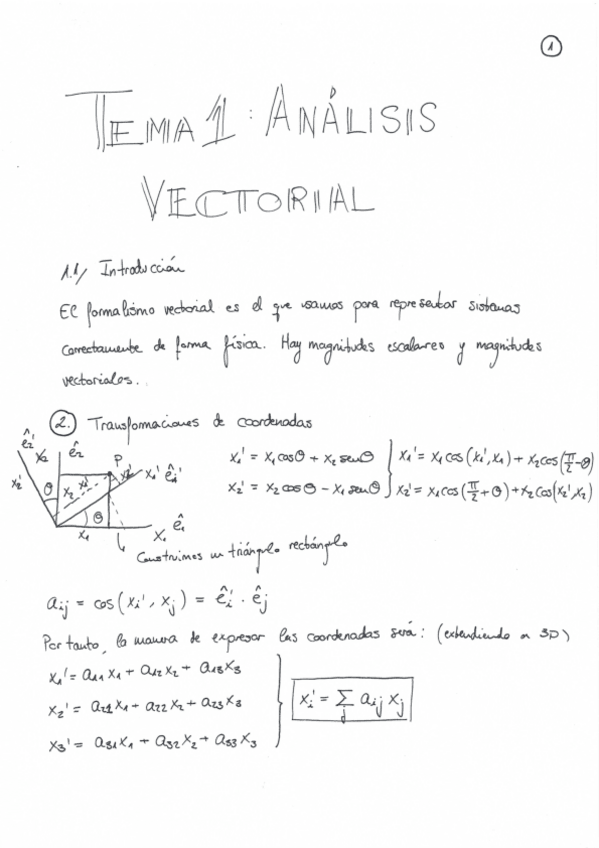 1
TEMA 1: ANÁLISIS
VECTORIAL
1.1/ Introducción
El formalismo vectorial es el que usamos para representar sistemas
correctamente de forma física. Hay magnitudes escalares y magnitudes
vectoriales.
2. Transformaciones de coordenadas
ê₂' x₂ ê₂
x₂' θ x₂ x₁' P x₂' x₁' ê₁'
θ x₁ x₁ ê₁
x₁' = x₁ cosθ + x₂ senθ } x₁' = x₁ cos(x₁', x₁) + x₂ cos(π/2 - θ)
x₂' = x₂ cosθ - x₁ senθ } x₂' = x₁ cos(π/2 + θ) + x₂ cos(x₂', x₂)
Construimos un triángulo rectángulo
aᵢⱼ = cos(xᵢ', xⱼ) = êᵢ' · êⱼ
Por tanto, la manera de expresar las coordenadas será: (extendiendo a 3D)
x₁' = a₁₁x₁ + a₁₂x₂ + a₁₃x₃
x₂' = a₂₁x₁ + a₂₂x₂ + a₂₃x₃
x₃' = a₃₁x₁ + a₃₂x₂ + a₃₃x₃
xᵢ' = Σⱼ aᵢⱼ xⱼ